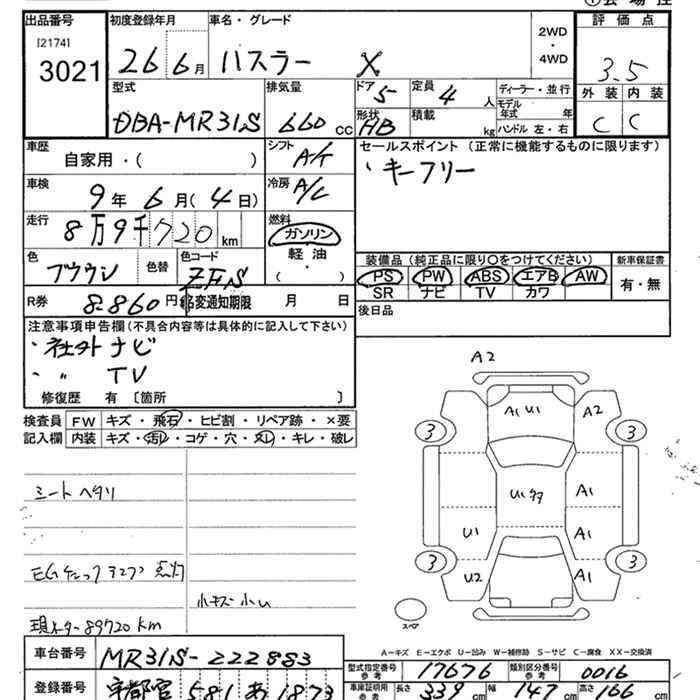 出品番号 初度登録年月 車名・グレード 2WD・4WD 評価点
[2174]
3021 26 6月 ハスラー X 3.5
型式 排気量 ドア 定員 ディーラー・並行 外装 内装
DBA-MR31S 660 cc 5 4人 モデル年式 年 C C
形状 積載
HB kg ハンドル 左・右
車歴 自家用・( ) シフト A/T セールスポイント(正常に機能するものに限ります)
・キーフリー
車検 9年6月(4日) 冷房 A/C
走行 8万9千720km 燃料 ガソリン・軽油・( )
色 ブラウン 色替 色コード ZFS
装備品(純正品に限り〇をつけてください) 新車保証書
PS PW ABS エアB AW 有・無
SR ナビ TV カワ
R券 8.860円 名変通知期限 月 日 後日品
注意事項申告欄(不具合内容等は具体的に記入して下さい)
・社外ナビ
・〃 TV
修復歴 有〔箇所 〕
検査員記入欄 FW キズ・飛石・ヒビ割・リペア跡・×要
内装 キズ・汚れ・コゲ・穴・スレ・キレ・破レ
シートヘタリ
EGチェックランプ点灯
小キズ小U
現メーター89720km
A2
A1 U1 A2
3 3
A1
U1 A1
3 3
U2 A1
スペア
A-キズ E-エクボ U-凹み W-補修跡 S-サビ C-腐食 XX-交換済
車台番号 MR31S-222883
型式指定番号 参考 17676 類別区分番号 参考 0016
登録番号 宇都宮 581 あ 1873
車庫証明用 参考 長さ 339cm 幅 147cm 高さ 166cm